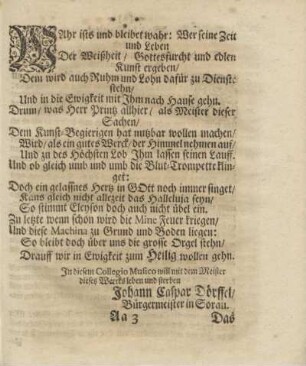 WAhr ists und bleibet wahr: Wer seine Zeit
und Leben
Der Weißheit / Gottesfurcht und edlen
Kunst ergeben /
Dem wird auch Ruhm und Lohn dafür zu Dienste
stehn /
Und in die Ewigkeit mit Ihm nach Hause gehn.
Drum / was Herr Printz allhier / als Meister dieser
Sachen /
Dem Kunst-Begierigen hat nutzbar wollen machen /
Wird / als ein gutes Werck / der Himmel nehmen auf /
Und zu des Höchsten Lob Ihm lassen seinen Lauff.
Und ob gleich umb und umb die Blut-Trompette klin-
get:
Doch ein gelassnes Hertz in GOtt noch immer singet /
Kans gleich nicht allezeit das Halleluja seyn /
So stimmt Eleyson doch auch nicht übel ein.
Zu letzt wenn schön wird die Mine Feuer kriegen /
Und diese Machina zu Grund und Boden liegen:
So bleibt doch über uns die grosse Orgel stehn /
Drauff wir in Ewigkeit zum Heilig wollen gehn.
In diesem Collegio Musico will mit dem Meister
dieses Wercks leben und sterben
Johann Caspar Dörffel /
Bürgermeister in Sorau.
Aa 3 Das